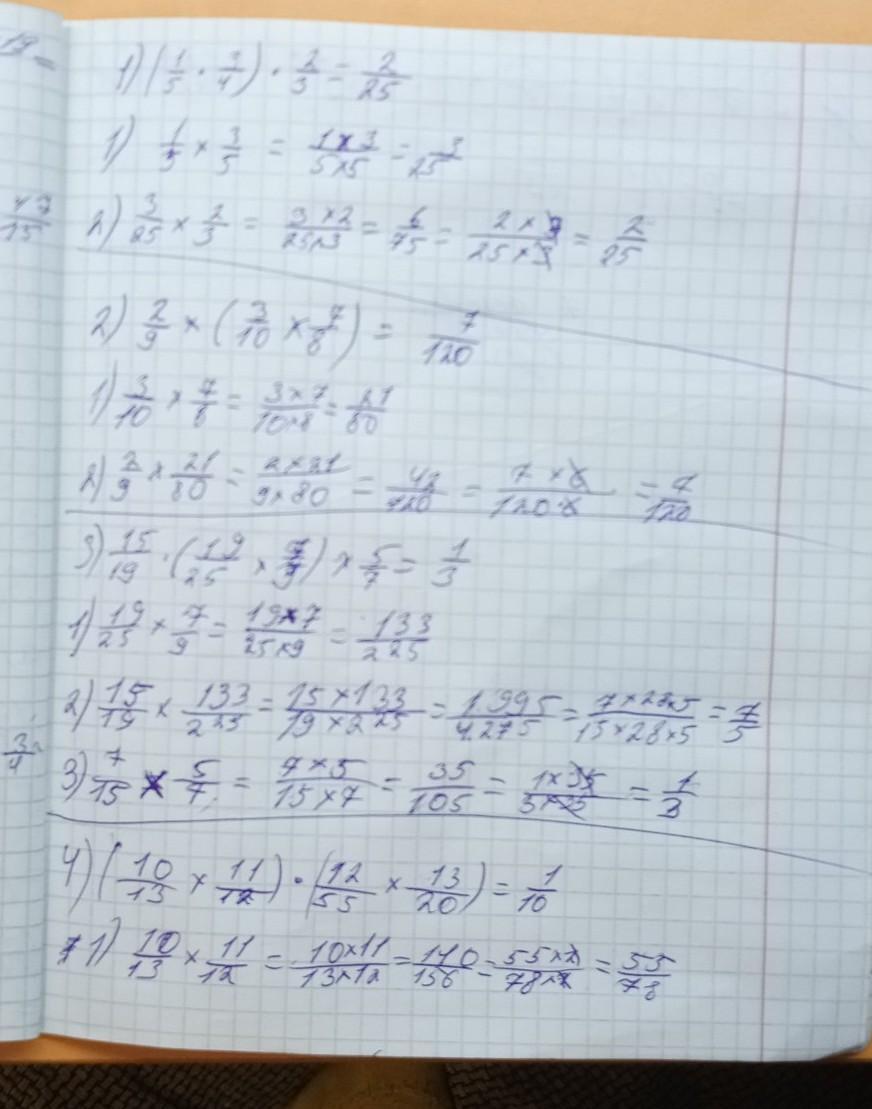 1) (1/5 · 3/4) · 2/3 = 2/25
1) 1/5 × 3/5 = 1×3/5×5 = 3/25
2) 3/25 × 2/3 = 3×2/25×3 = 6/75 = 2×3/25×3 = 2/25
2) 2/9 × (3/10 × 7/8) = 7/120
1) 3/10 × 7/8 = 3×7/10×8 = 21/80
2) 2/9 × 21/80 = 2×21/9×80 = 42/720 = 7×6/120·6 = 7/120
3) 15/19 · (19/25 × 7/9) × 5/7 = 1/3
1) 19/25 × 7/9 = 19×7/25×9 = 133/225
2) 15/19 × 133/225 = 15×133/19×225 = 1.995/4.275 = 7×28×5/15×28×5 = 7/5
3) 7/15 × 5/7 = 7×5/15×7 = 35/105 = 1×35/3×35 = 1/3
4) (10/13 × 11/12) · (12/55 × 13/20) = 1/10
1) 10/13 × 11/12 = 10×11/13×12 = 110/156 = 55×2/78×2 = 55/78
47/15
3/4